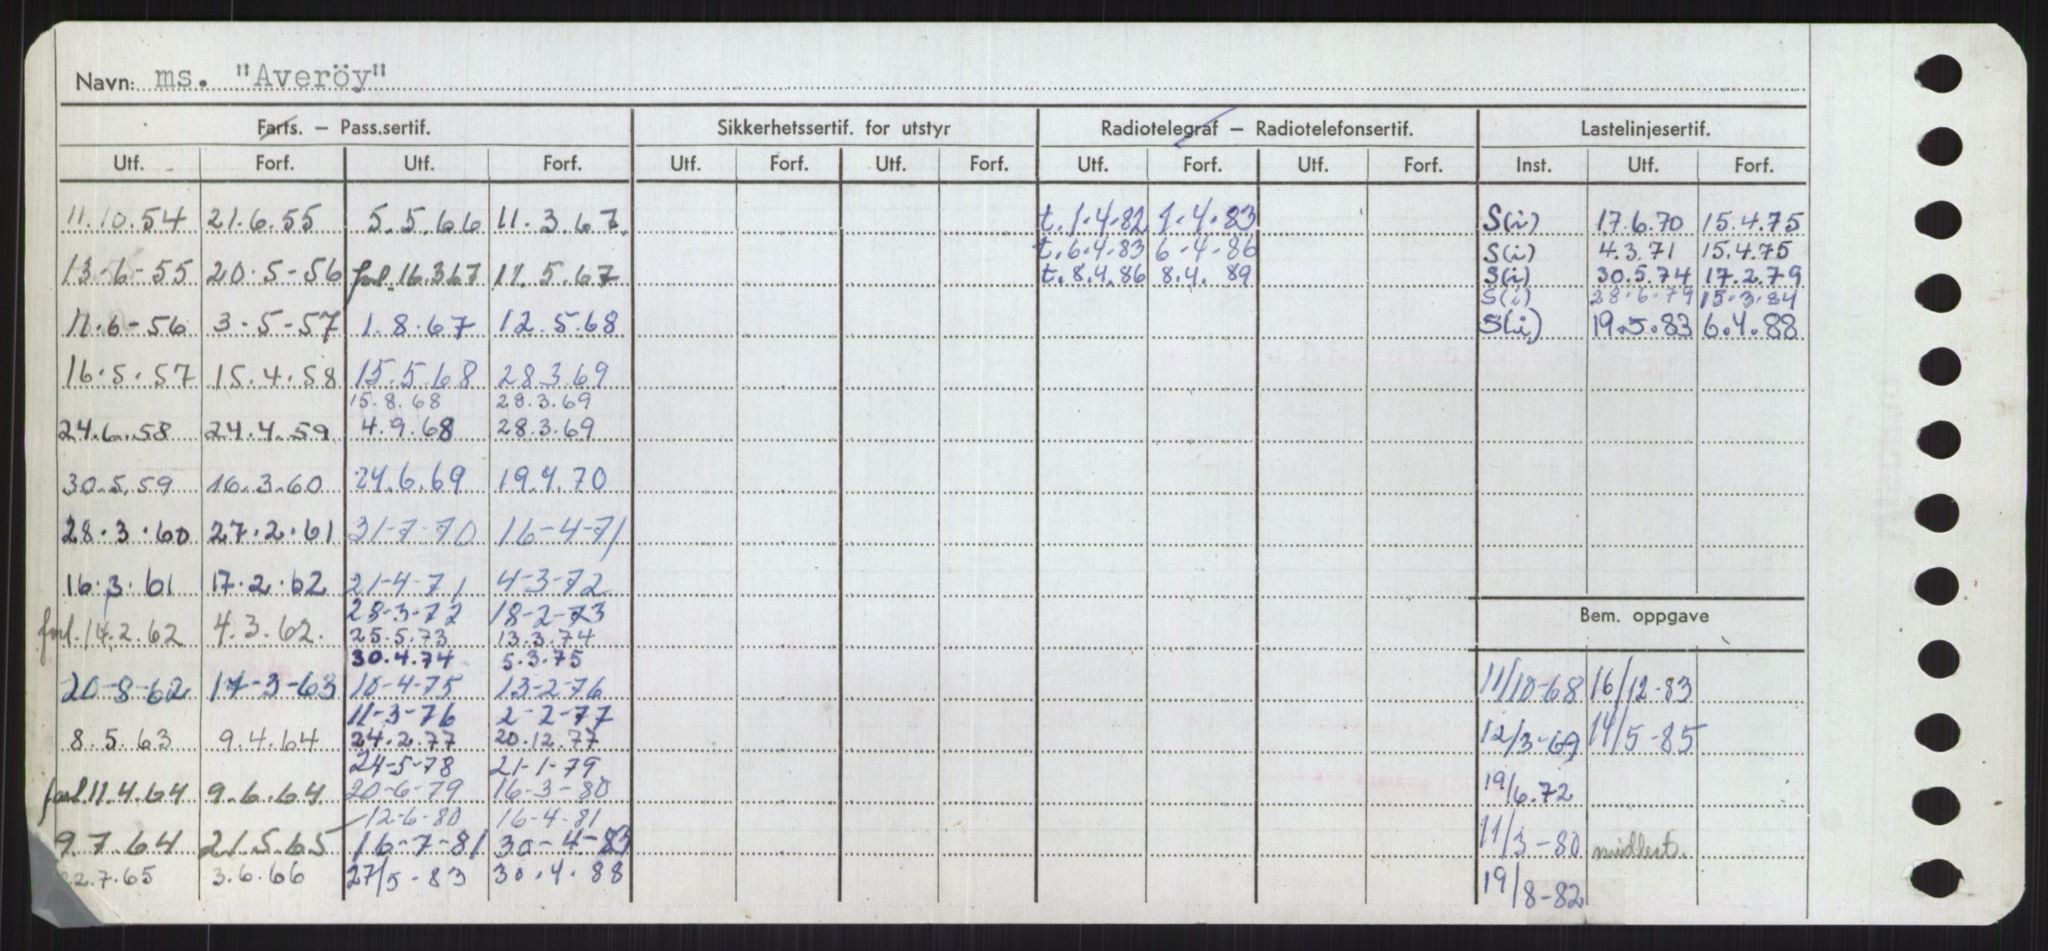 Navn: ms. "Averöy"
Farts. – Pass.sertif. Sikkerhetssertif. for utstyr Radiotelegraf – Radiotelefonsertif. Lastelinjesertif.
Utf. Forf. Utf. Forf. Utf. Forf. Utf. Forf. Utf. Forf. Utf. Forf. Inst. Utf. Forf.
11.10.54 21.6.55 5.5.66 11.3.67. t. 1.4.82 1.4.83 S(i) 17.6.70 15.4.75
t. 6.4.83 6-4-86 S(i) 4.3.71 15.4.75
13-6-55 20.5-56 forl. 16.3.67 11.5.67 t. 8.4.86 8.4.89 S(i) 30.5.74 17.2.79
S(i) 28.6.79 15.3.84
11.6-56 3-5-57 1.8.67 12.5.68 S(i) 19.5.83 6.4.88
16.5.57 15.4.58 15.5.68 28.3.69
15.8.68 28.3.69
24.6.58 24.4.59 4.9.68 28.3.69
30.5.59 16.3.60 24.6.69 19.4.70
28.3.60 27.2.61 31-7-70 16-4-71
16.3.61 17.2.62 21-4-71 4-3-72
28-3-72 18-2-73
Bem. oppgave
forl. 14.2.62 4.3.62. 25.5.73 13.3.74
30.4.74 5.3.75
20-8-62 17-3-63 10-4-75 13-2-76 11/10-68 16/12-83
11-3-76 2-2-77
8.5.63 9.4.64 24.2.77 20.12.77 12/3-69 14/5-85
24-5-78 21-1-79
forl. 11.4.64 9.6.64 20-6-79 16-3-80 19/6.72
12-6-80 16-4-81
9.7.64 21.5.65 16-7-81 30-4-83 11/3-80 midlert.
22.7.65 3.6.66 27/5-83 30.4.88 19/8-82